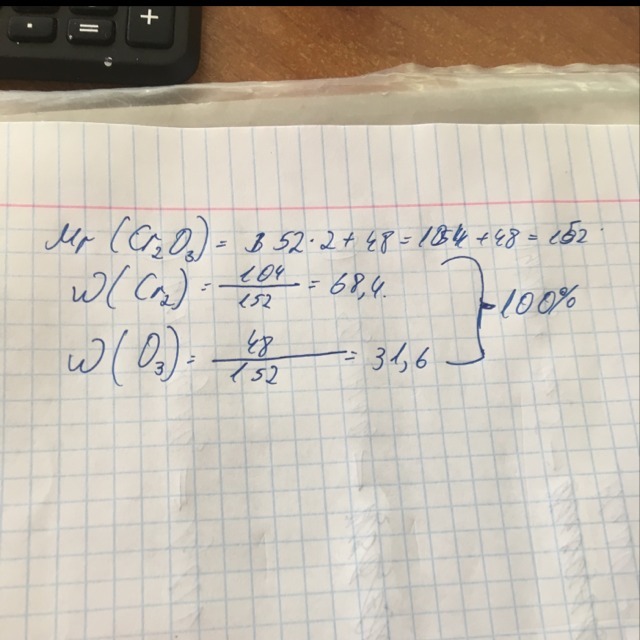 Mr (Cr₂O₃) = 52·2 + 48 = 104 + 48 = 152
W (Cr₂) = 104/152 = 68,4.
W (O₃) = 48/152 = 31,6
} 100%